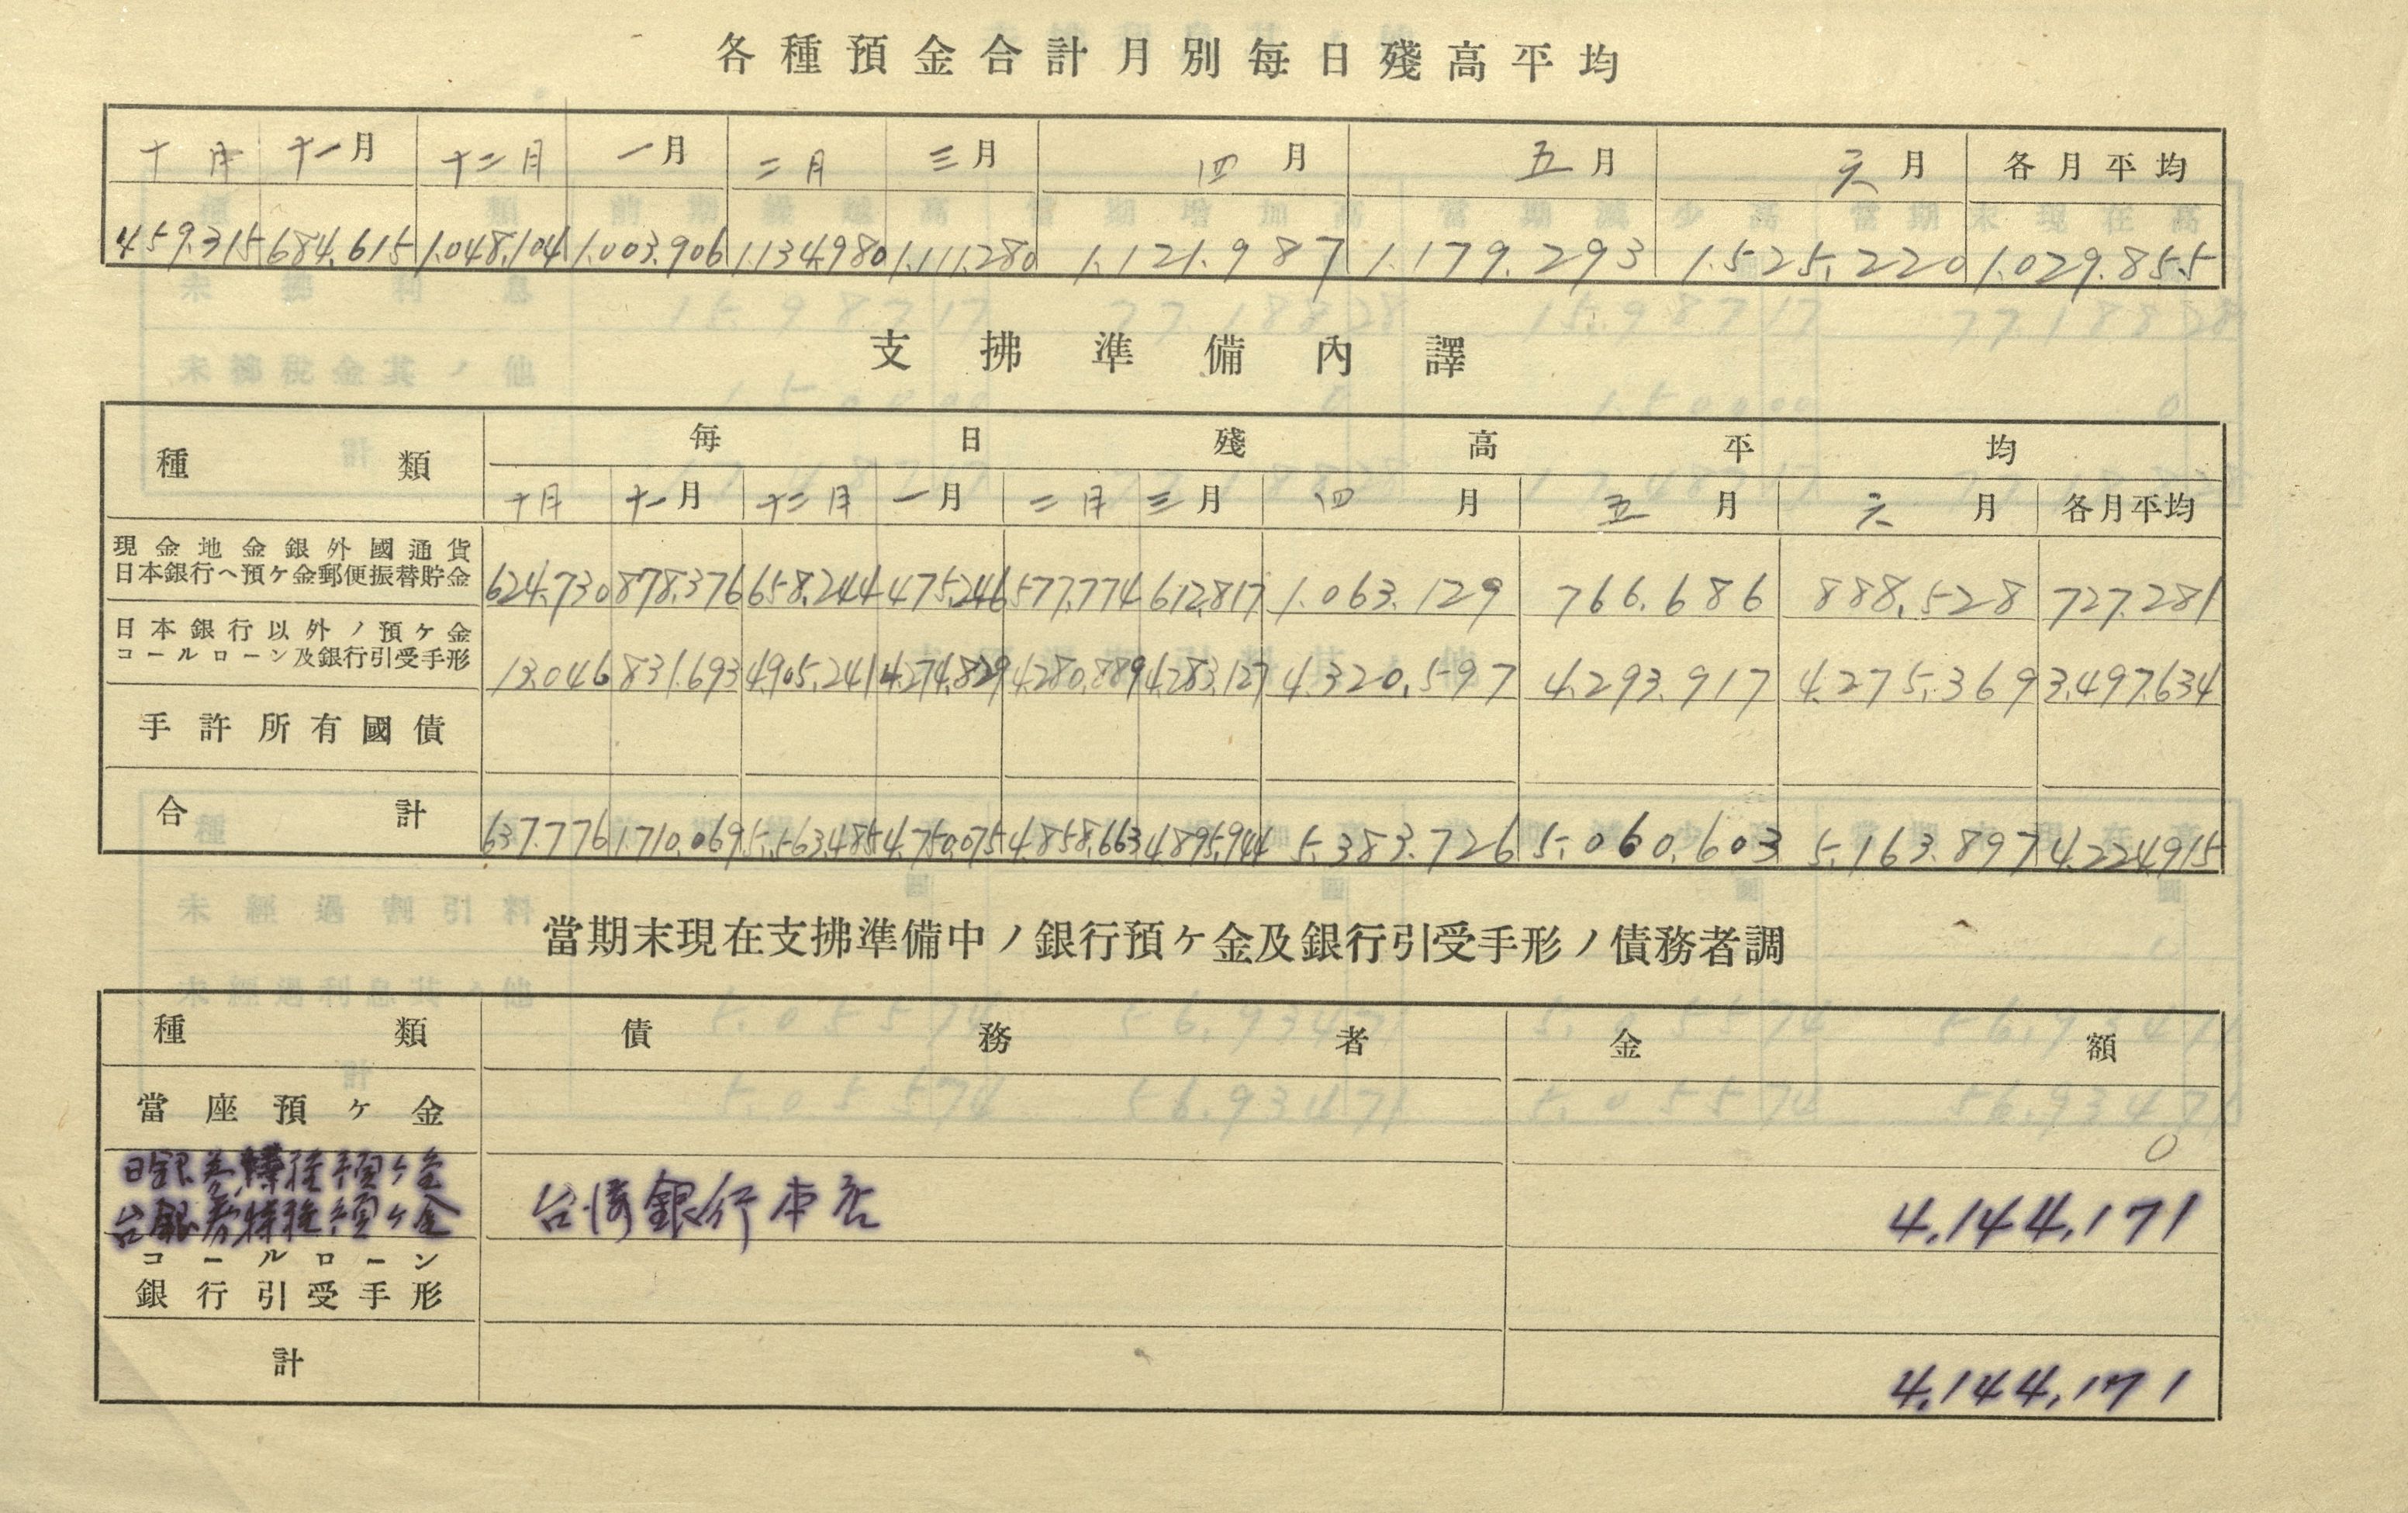 各種預金合計月別每日殘高平均
十月 十一月 十二月 一月 二月 三月 四月 五月 六月 各月平均
459.315 684.615 1.048.104 1.003.906 1.134.980 1.111.280 1.121.987 1.179.293 1.525.220 1.029.855
支拂準備內譯
種類 每日殘高平均
十月 十一月 十二月 一月 二月 三月 四月 五月 六月 各月平均
現金地金銀外國通貨
日本銀行ヘ預ケ金郵便振替貯金 624.730 878.376 658.244 475.246 577.774 612.817 1.063.129 766.686 888.528 727.281
日本銀行以外ノ預ケ金
コールローン及銀行引受手形 13.046 831.693 4.905.241 4.274.829 4.280.889 4.283.127 4.320.597 4.293.917 4.275.369 3.497.634
手許所有國債
合計 637.776 1.710.069 5.563.485 4.750.075 4.858.663 4.895.944 5.383.726 5.060.603 5.163.897 4.224.915
當期末現在支拂準備中ノ銀行預ケ金及銀行引受手形ノ債務者調
種類 債務者 金額
當座預ケ金 0
日銀券特種預ケ金
台銀券特種預ケ金 台湾銀行本店 4,144,171
コールローン
銀行引受手形
計 4,144,171